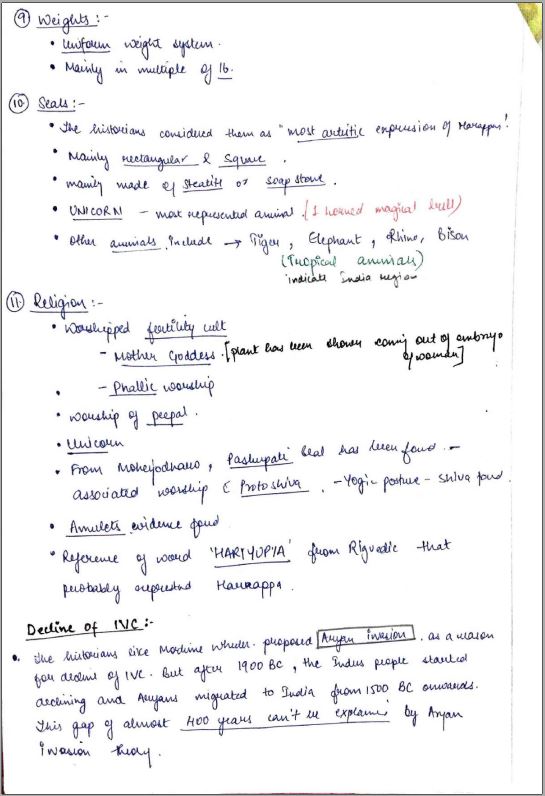 ⑨ Weights :-
• Uniform weight system.
• Mainly in multiple of 16.
⑩ Seals :-
• The historians considered them as "most artistic expression of Harappans!
• Mainly rectangular & square.
• mainly made of steatite or soap stone.
• UNICORN – most represented animal. (1 horned magical bull)
• Other animals include → Tiger, Elephant, Rhino, Bison
(Tropical animals)
indicate India region
⑪ Religion :-
• Worshipped fertility cult
- Mother Goddess. [plant has been shown coming out of embryo
of woman]
• – Phallic worship
• worship of peepal.
• Unicorn
• From Mohenjodharo, Pashupati seal has been found. –
associated worship Proto shiva. – Yogic posture – Shiva found.
• Amulets evidence found.
• Reference of word 'HARIYUPIA' from Rigvedic that
probably represented Harrappa.
Decline of IVC :-
• The historians like proposed Aryan invasion. as a reason
for decline of IVC. But after 1900 BC, the Indus people started
declining and Aryans migrated to India from 1500 BC onwards.
This gap of almost 400 years can't be explained by Aryan
invasion theory.